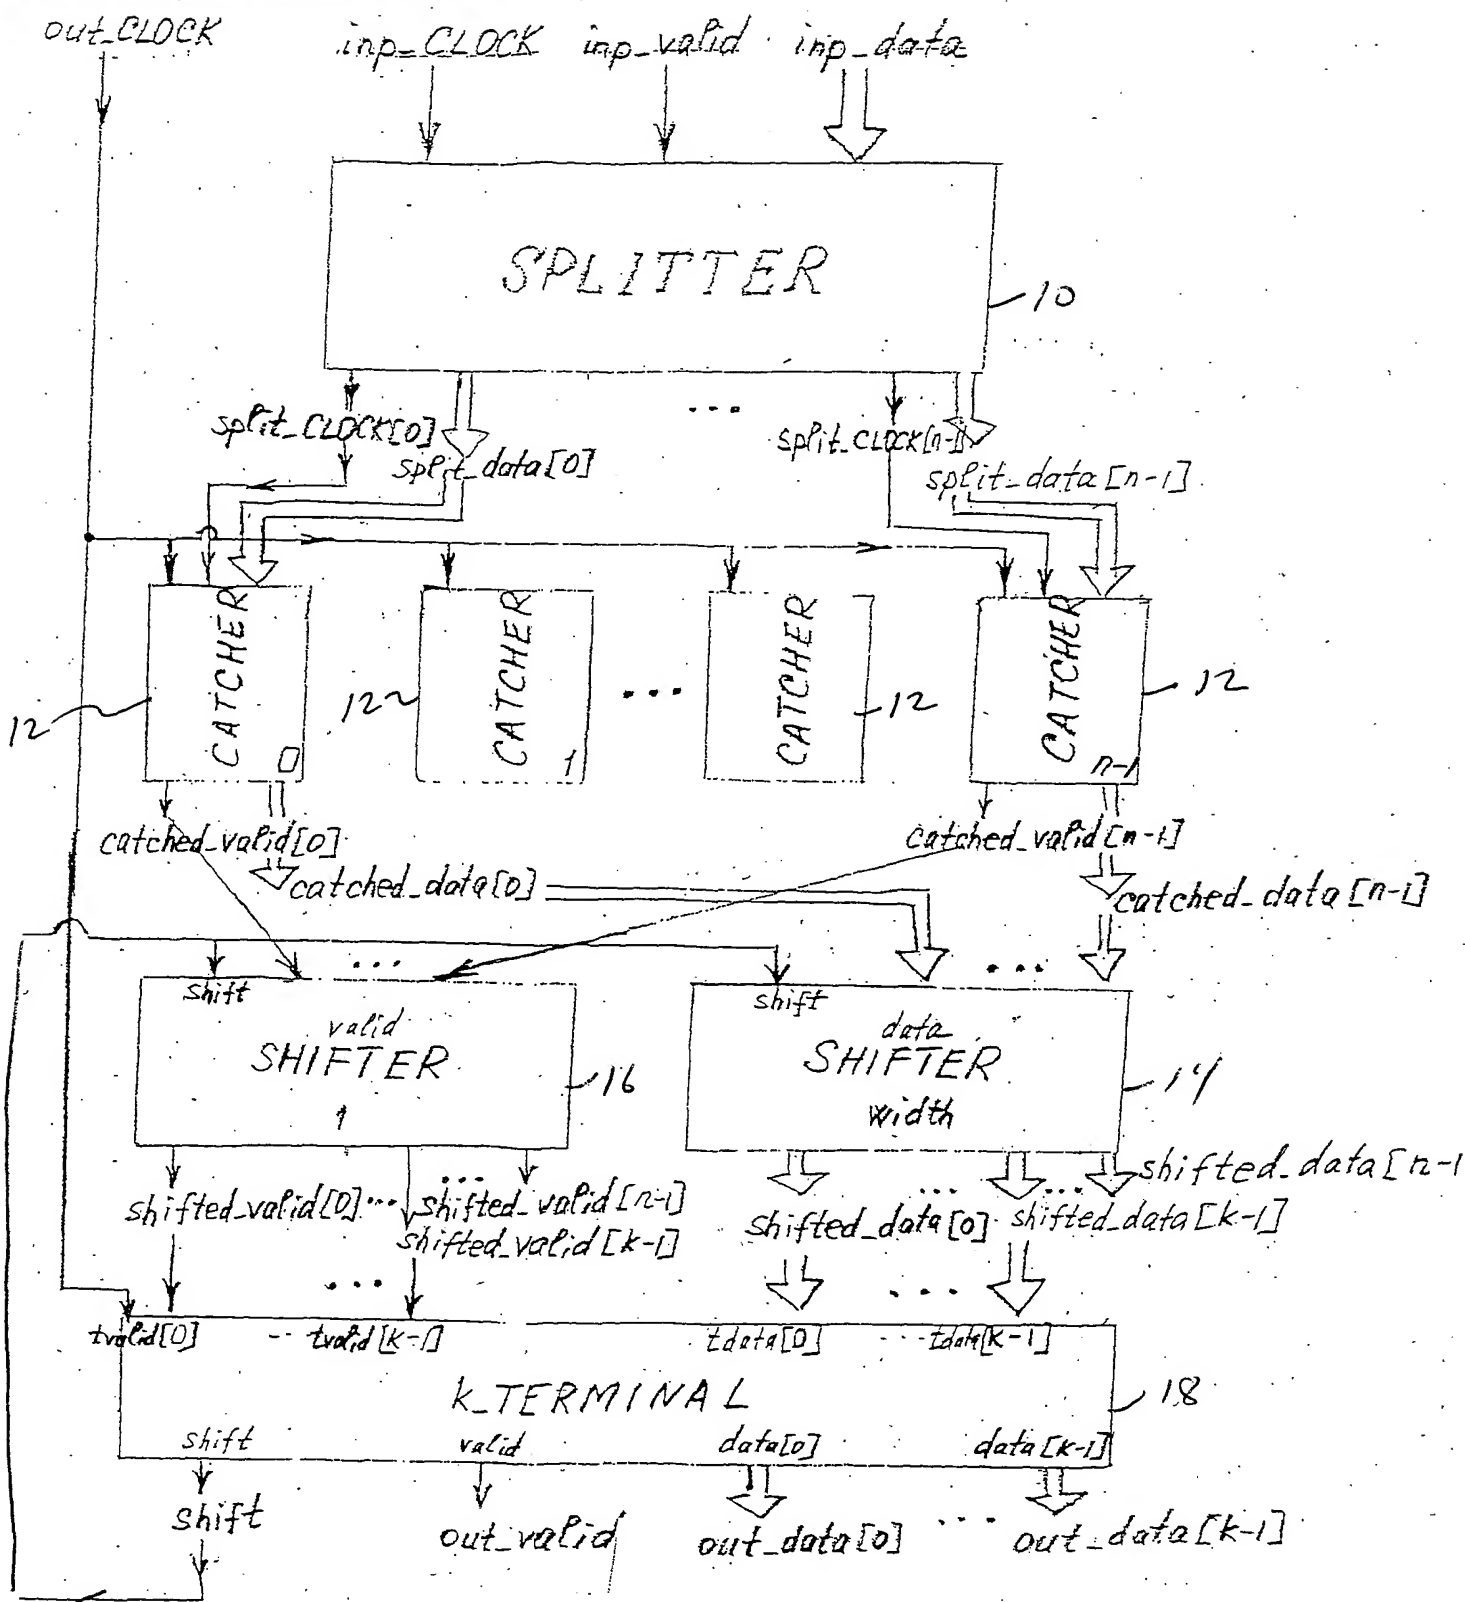 out_CLOCK
inp_CLOCK inp_valid inp_data
SPLITTER
10
split_CLOCK[0]
split_data[0]
...
split_CLOCK[n-1]
split_data[n-1]
CATCHER
0
12
CATCHER
1
12
...
CATCHER
12
CATCHER
n-1
12
catched_valid[0]
catched_data[0]
catched_valid[n-1]
catched_data[n-1]
...
...
shift
valid
SHIFTER
1
16
shift
data
SHIFTER
width
14
shifted_valid[0]... shifted_valid[n-1]
shifted_valid[k-1]
shifted_data[n-1
shifted_data[0] ... shifted_data[k-1]
...
...
tvalid[0] ... tvalid[k-1] tdata[0] ... tdata[k-1]
k_TERMINAL
18
shift valid data[0] data[k-1]
shift
out_valid
out_data[0] ... out_data[k-1]